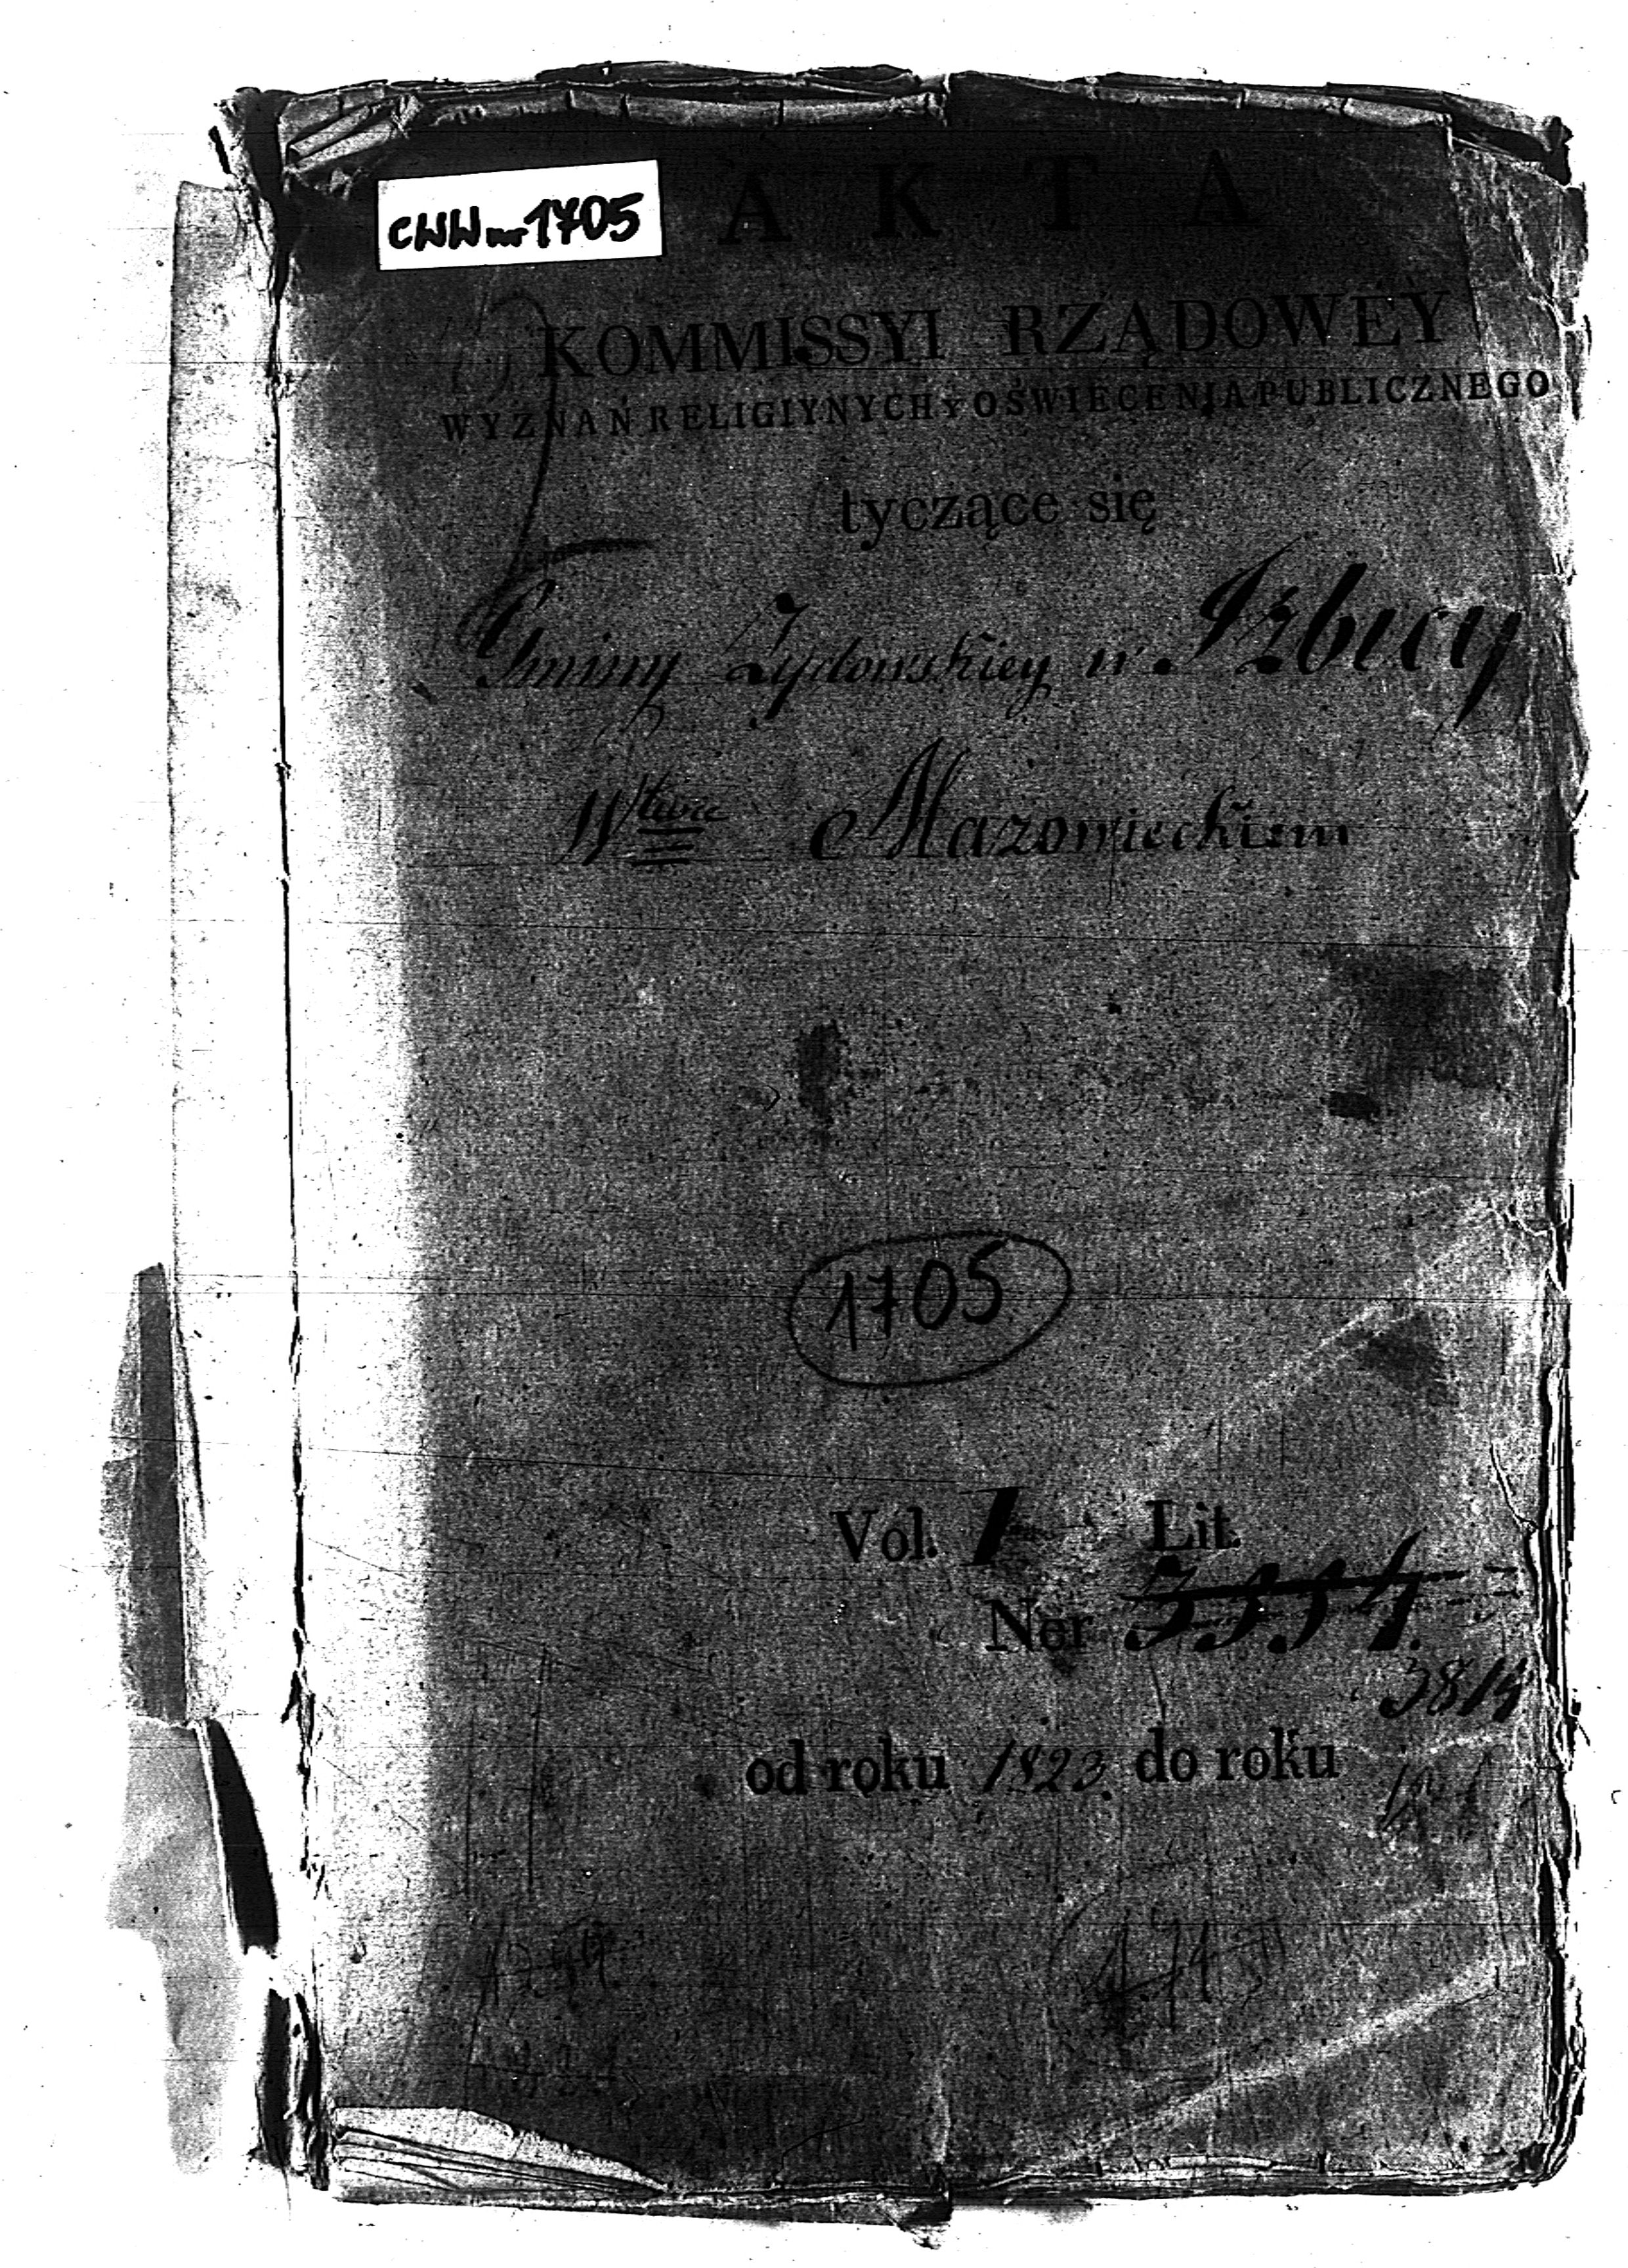 CWW nr 1705
AKTA
KOMMISSYI RZĄDOWEY
WYZNAŃ RELIGIYNYCH Y OŚWIECENIA PUBLICZNEGO
tyczące się
Gminy Żydowskiey w Izbicy
Wtwie Mazowieckiem
1705
Vol. 1 Lit.
Ner
3819
od roku 1823 do roku